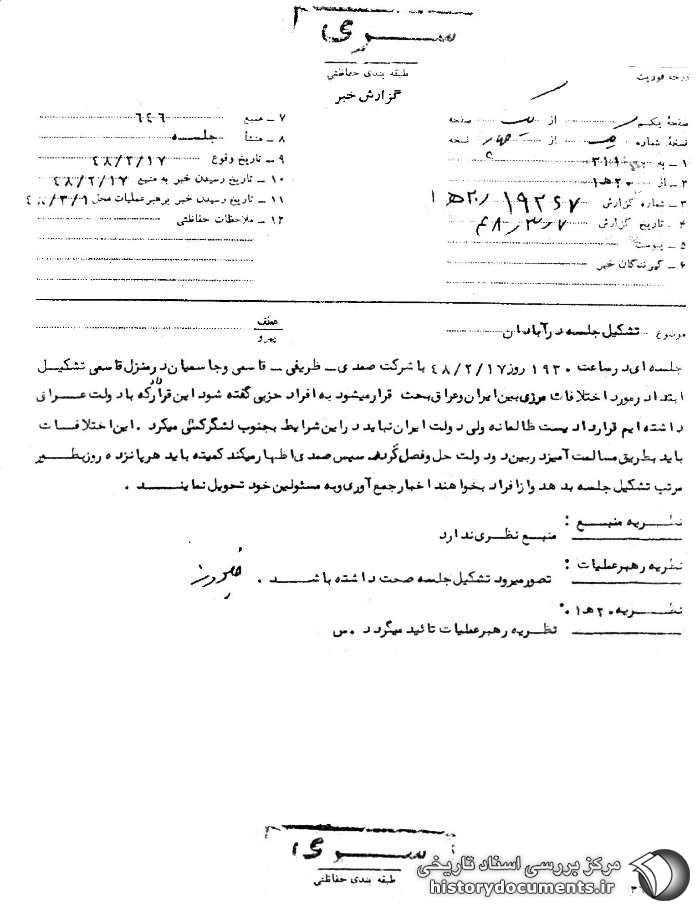 سری
طبقه بندی حفاظتی
گزارش خبر
درجه فوریت
صفحهٔ یکم از یک صفحه
نسخهٔ شماره از چهار نسخه
۱ ـ به ۳۱۱
۲ ـ از ۲۰ هـ ۱
۳ ـ شماره گزارش ۱۹۲۶۷ / ۲۰ هـ ۱
۴ ـ تاریخ گزارش ۴۸٫۳٫۷
۵ ـ پیوست
۶ ـ گیرندگان خبر
۷ ـ منبع ۶۴۶
۸ ـ منشأ جلسه
۹ ـ تاریخ وقوع ۴۸/۲/۱۷
۱۰ ـ تاریخ رسیدن خبر به منبع ۴۸/۲/۱۷
۱۱ ـ تاریخ رسیدن خبر برهبر عملیات محل
۱۲ ـ ملاحظات حفاظتی
موضوع تشکیل جلسه در آبادان
عطف
پیرو
جلسه ای در ساعت ۱۹۳۰ روز ۴۸/۲/۱۷ با شرکت صمدی ـ ظریفی ـ قاسمی و جاسمیان در منزل قاسمی تشکیل
ابتدا در مورد اختلافات مرزی بین ایران و عراق بحث قرار میشود به افراد حزبی گفته شود این قرارداد که با دولت عراقی
داشته ایم قرارداد یست ظالمانه ولی دولت ایران نباید در این شرایط بجنوب لشگرکشی میکرد . این اختلافات
باید بطریق مسالمت آمیز در بین دو دولت حل و فصل گردد. سپس صمدی اظهار میکند کمیته باید هر پانزده روز بطور
مرتب تشکیل جلسه بدهد و از افراد بخواهند اخبار جمع آوری و به مسئولین خود تحویل نمایند .
نظریه منبع : منبع نظری ندارد
نظریه رهبر عملیات : تصور میرود تشکیل جلسه صحت داشته باشد .
نظریه ۲۰ هـ ۱۰ نظریه رهبر عملیات تائید میگردد . س
سری
طبقه بندی حفاظتی
مرکز بررسی اسناد تاریخی
historydocuments.ir